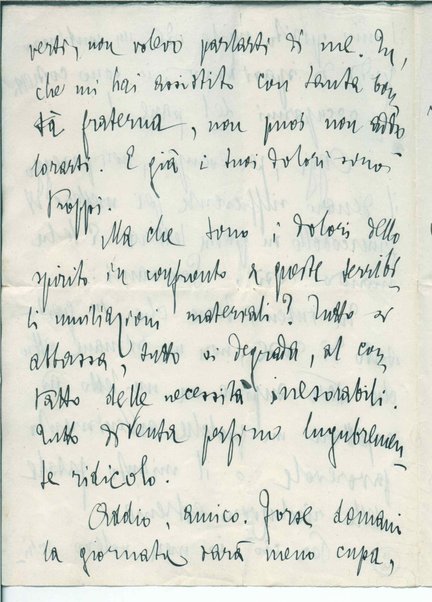 verti, non volevo parlarti di me. Tu,
che mi hai assistito con tanta bon
tà fraterna, non puoi non addo
lorarti. E già i tuoi dolori sono
troppi.
Ma che sono i dolori dello
spirito in confronto a queste terribi
li umiliazioni materiali? Tutto si
abbassa, tutto si degrada, al con
tatto delle necessità inesorabili.
Tutto diventa perfino lugubremen
te ridicolo.
Addio, amico. Forse domani
la giornata sarà meno cupa,